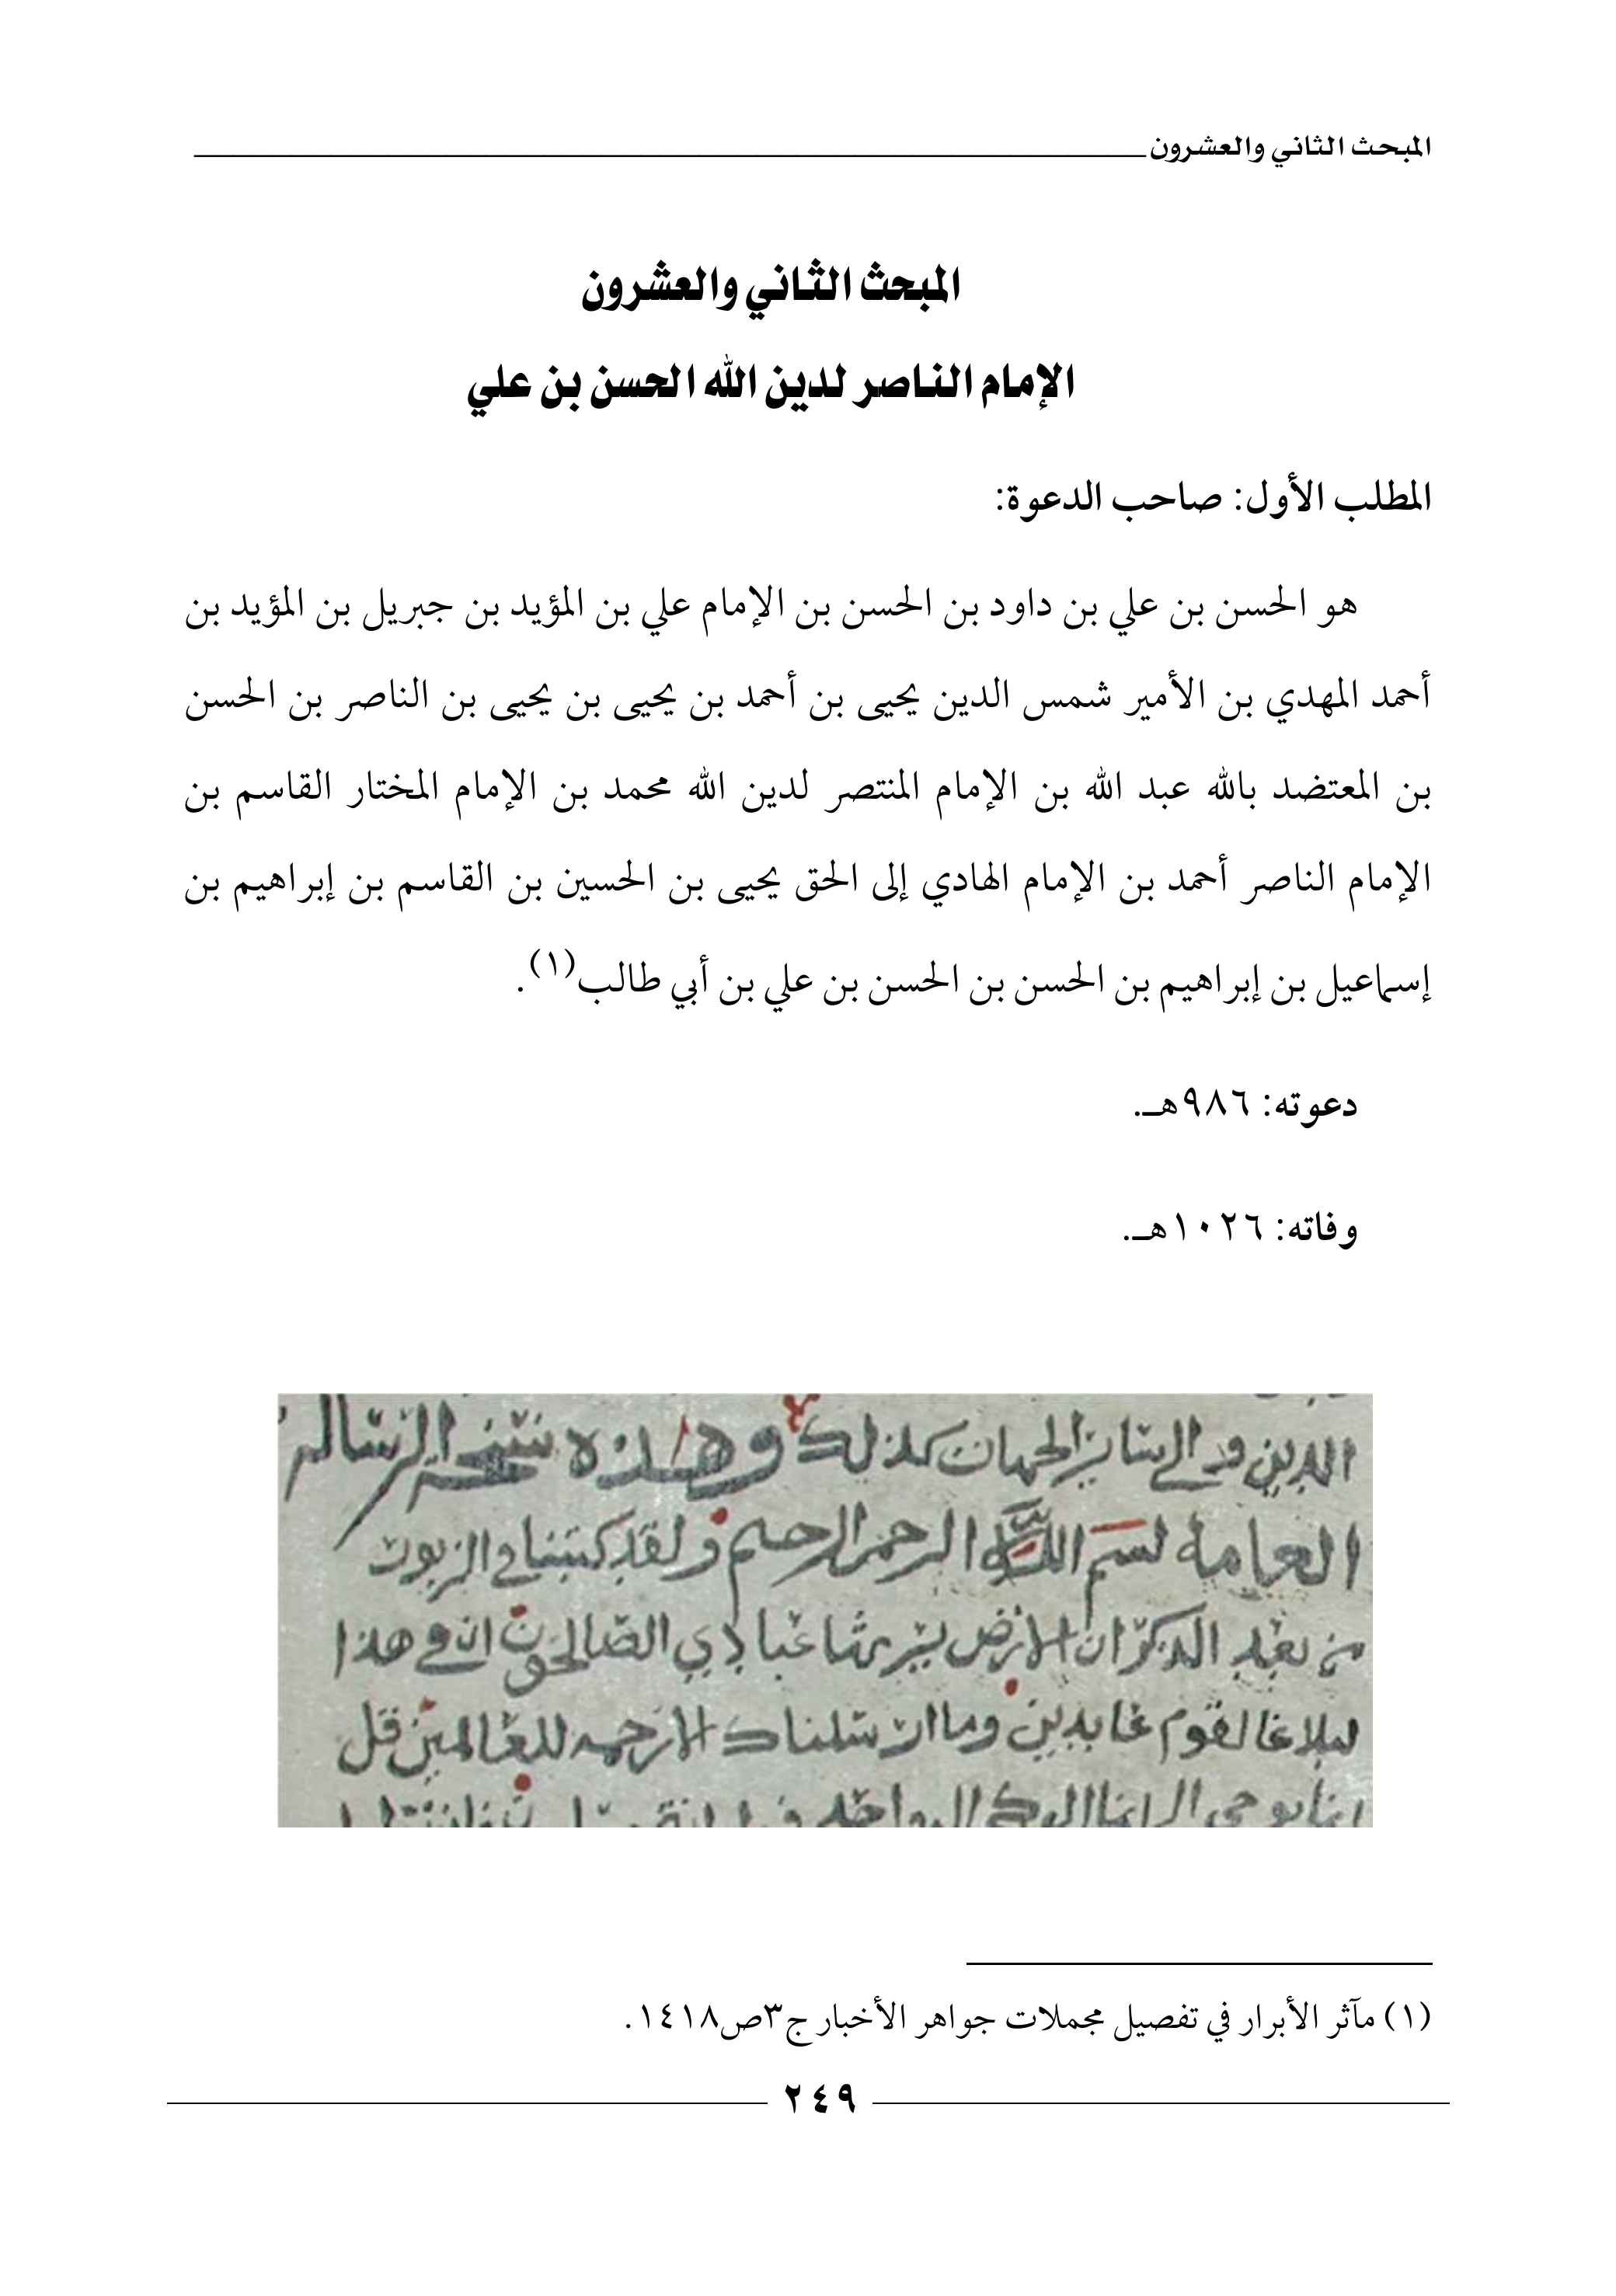 المبحث الثاني والعشرون
المبحث الثاني والعشرون
الإمام الناصر لدين الله الحسن بن علي
المطلب الأول: صاحب الدعوة:
هو الحسن بن علي بن داود بن الحسن بن الإمام علي بن المؤيد بن جبريل بن المؤيد بن
أحمد المهدي بن الأمير شمس الدين يحيى بن أحمد بن يحيى بن يحيى بن الناصر بن الحسن
بن المعتضد بالله عبد الله بن الإمام المنتصر لدين الله محمد بن الإمام المختار القاسم بن
الإمام الناصر أحمد بن الإمام الهادي إلى الحق يحيى بن الحسين بن القاسم بن إبراهيم بن
إسماعيل بن إبراهيم بن الحسن بن الحسن بن علي بن أبي طالب(١).
دعوته: ٩٨٦هـ.
وفاته: ١٠٢٦هـ.
الدين والى سائر الجهات كذلك وهذه نسخة الرسالة
العامة بسم الله الرحمن الرحيم ولقد كتبنا في الزبور
من بعد الذكر ان الارض يرثها عبادي الصالحون ان في هذا
لبلاغا لقوم عابدين وما ارسلناك الا رحمة للعالمين قل
انما يوحى الي انما الهكم اله واحد
(١) مآثر الأبرار في تفصيل مجملات جواهر الأخبار ج٣ص١٤١٨.
٢٤٩